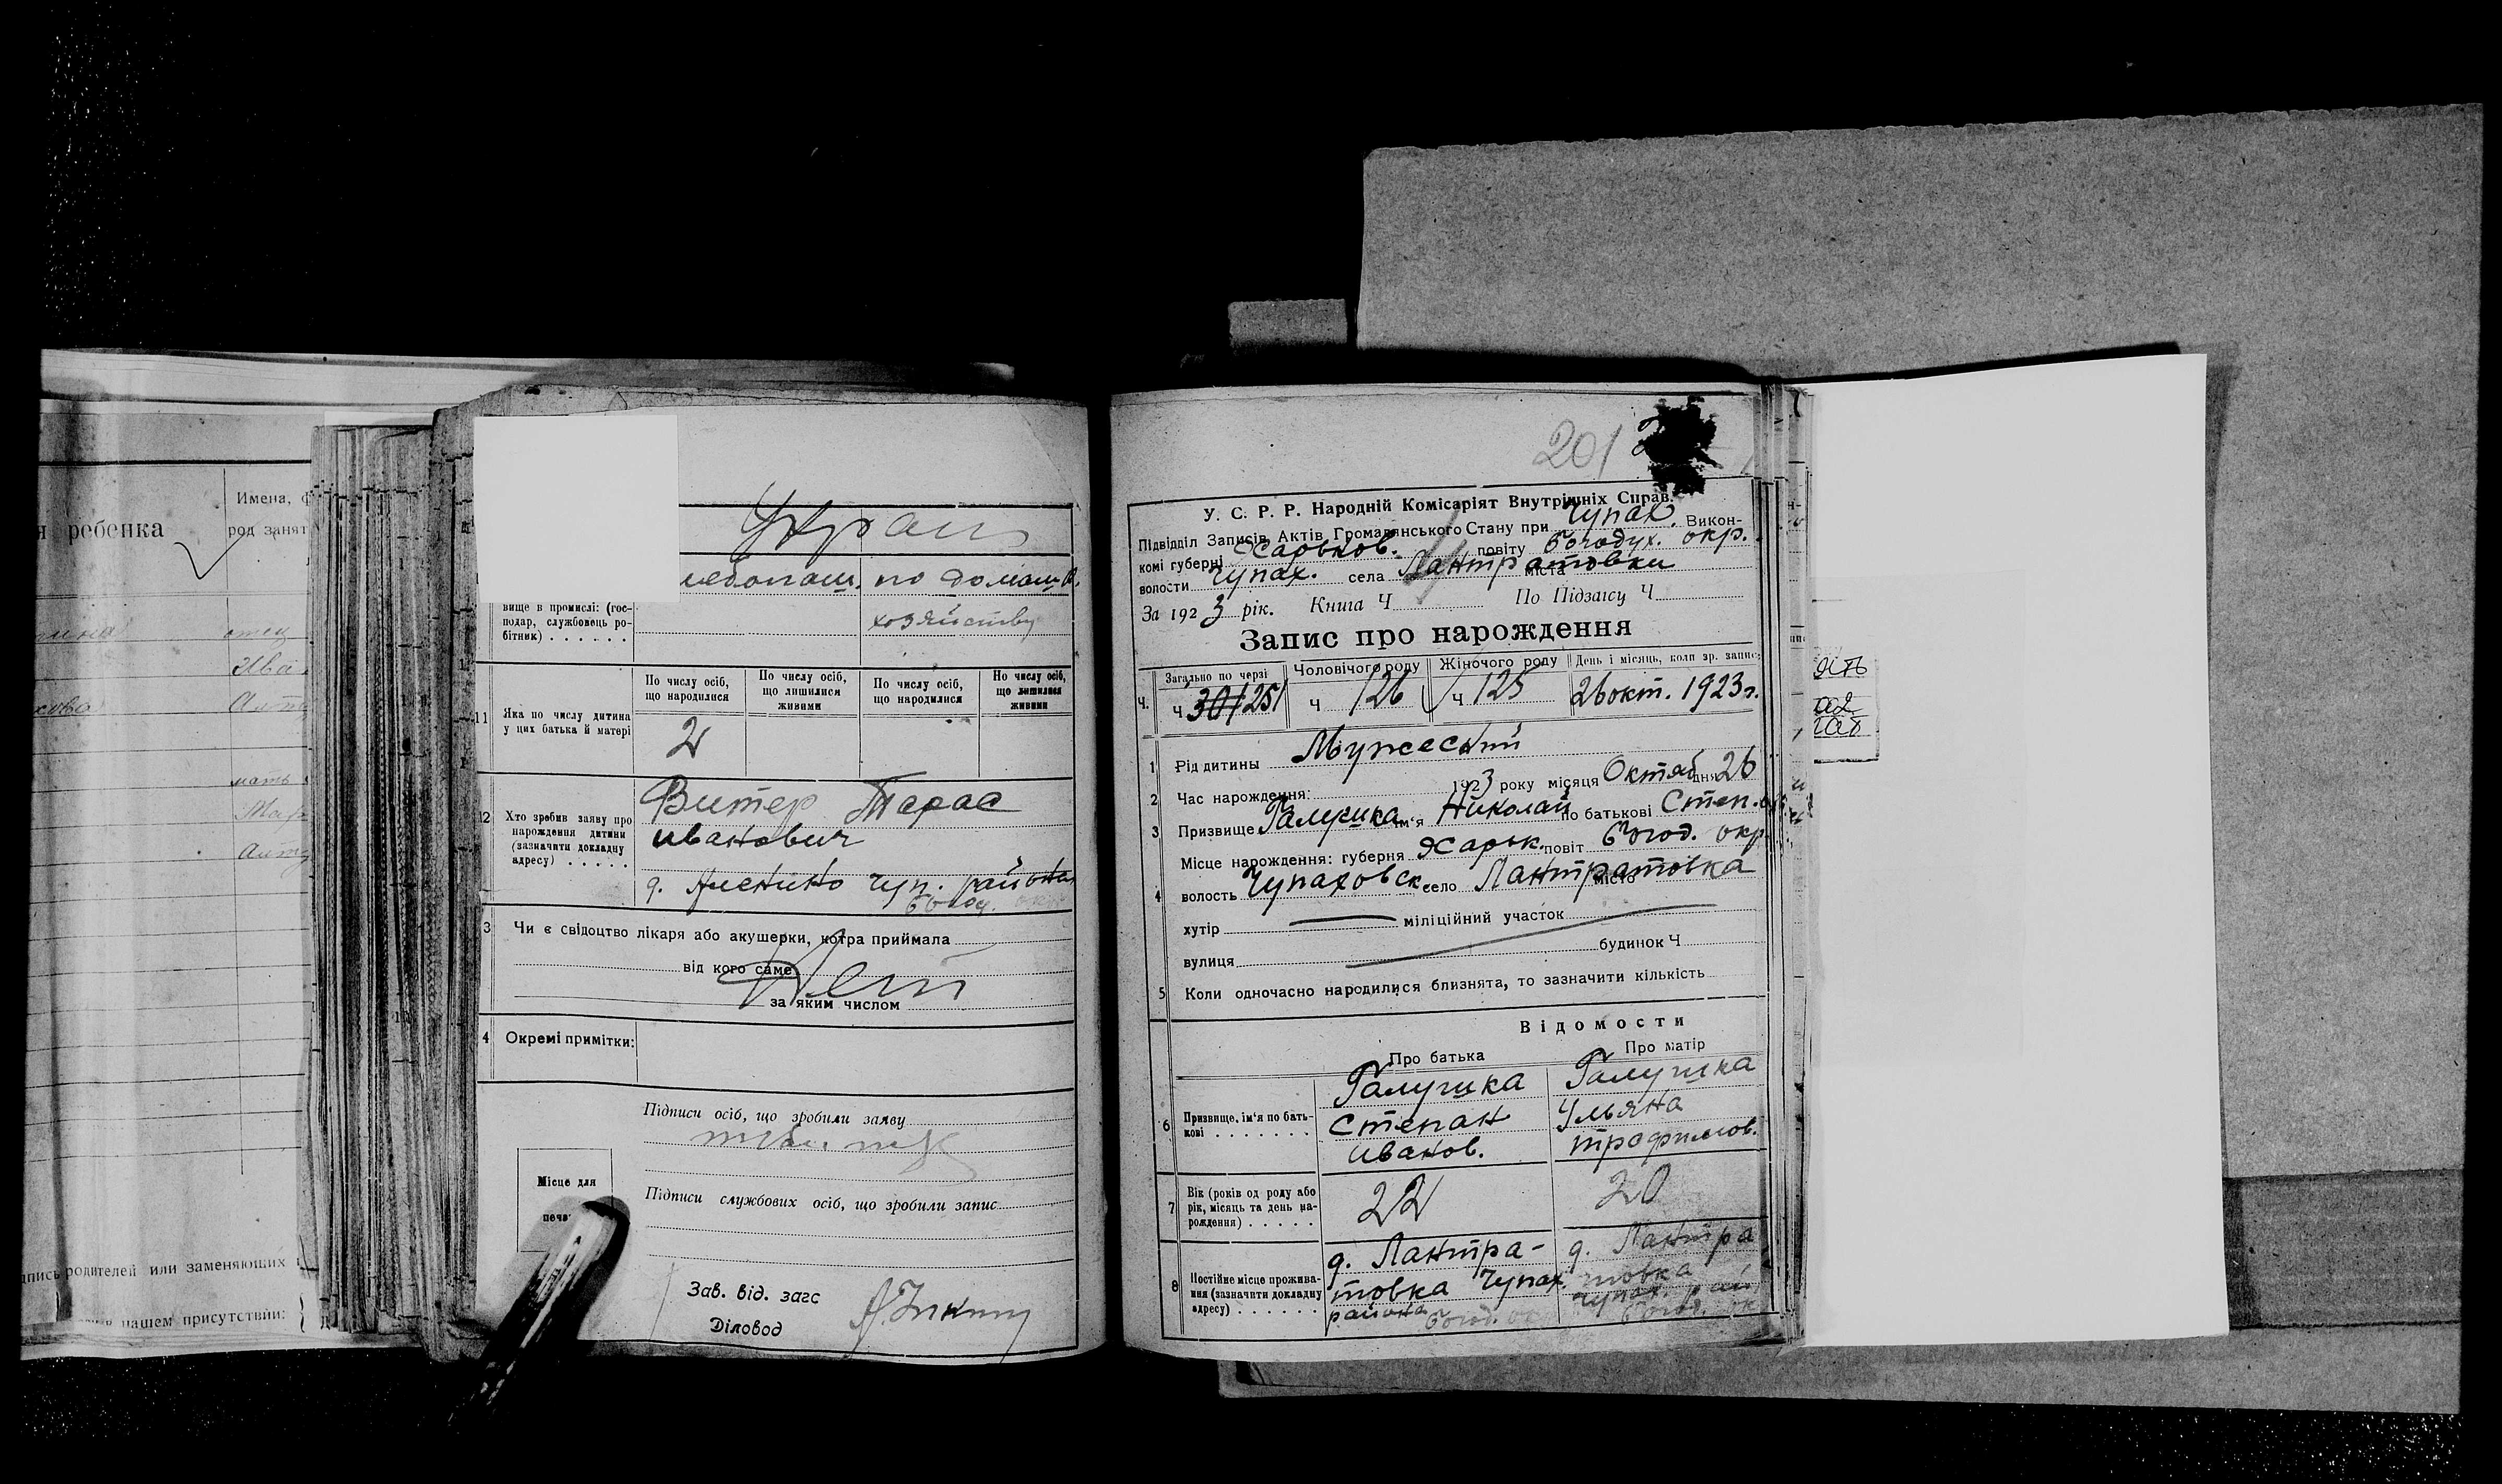 ребенка
Имена, ф
род занят
отец
Ива
мать
родителей или заменяющих
в нашем присутствии:
Украин
по домашн.
хозяйству
вище в промислі: (гос-
подар, службовець ро-
бітник) . . . . . .
11 Яка по числу дитина
у цих батька й матері
По числу осіб,
що народилися
По числу осіб,
що лишилися
живими
По числу осіб,
що народилися
Но числу осіб,
що лишилися
живими
2
12 Хто зробив заяву про
нарождення дитини
(зазначити докладну
адресу) . . . . .
Витер Тарас
Иванович
д. Аленино Чуп. района
Богод. окр
3 Чи є свідоцтво лікаря або акушерки, котра приймала
від кого саме
Нет
за яким числом
4 Окремі примітки:
Підписи осіб, що зробили заяву
Місце для
печа
Підписи службових осіб, що зробили запис
Зав. від. загс
Діловод
201
У. С. Р. Р. Народній Комісаріят Внутрішніх Справ.
Підвідділ Записів Актів Громадянського Стану при Чупах. Викон-
комі губерні Харьков. повіту Богодух. окр.
волости Чупах. села Лантратовки міста
За 1923 рік. Книга Ч По Підзагсу Ч
Запис про нарождення
Загально по черзі Чоловічого роду Жіночого роду День і місяць, коли зр. запис
Ч. ч 301 251 ч 126 ч 125 26 окт. 1923 г.
1 Рід дитини Мужеский
2 Час нарождення: 1923 року місяця Октяб дня 26
3 Призвище Галушка ім'я Николай по батькові Степ.
Місце нарождення: губерня Харьк. повіт Богод. окр
4 волость Чупаховск село Лантратовка місто
хутір міліційний участок
вулиця будинок Ч
5 Коли одночасно народилися близнята, то зазначити кількість
Відомости
Про батька Про матір
6 Призвище, ім'я по бать-
кові . . . . . . .
Галушка
Степан
Иванов.
Галушка
Ульяна
Трофимов.
7 Вік (років од роду або
рік, місяць та день на-
рождення) . . . . .
22
20
8 Постійне місце прожива-
ння (зазначити докладну
адресу) . . . . . .
д. Лантра-
товка Чупах
района Богод. ок
д. Лантра
товка
Чупах. рай
Богод. ок